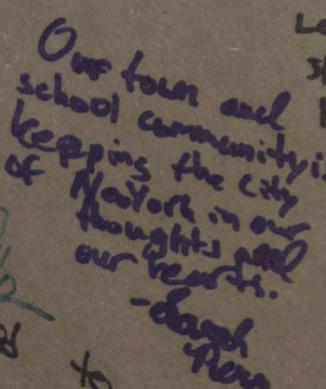 Our town and
school community is
keeping the City
of New York in our
thoughts and
our hearts.
-Sarah
to